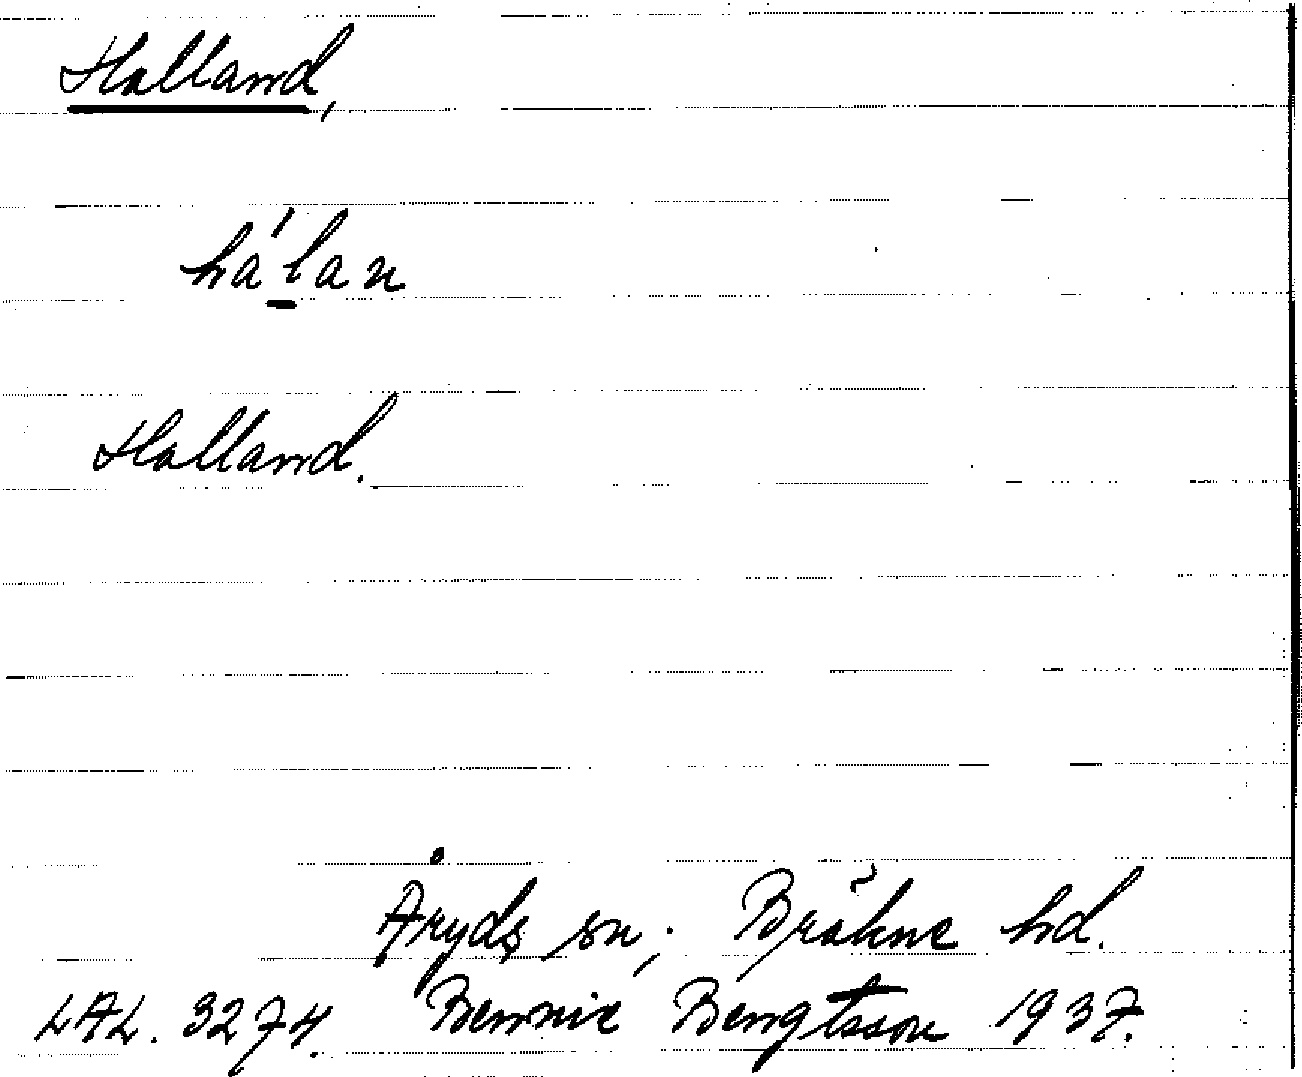 Halland,
há'lan
Halland.
Åryds sn; Bräkne hd.
LAL. 3274. Bennie Bengtsson 1937.